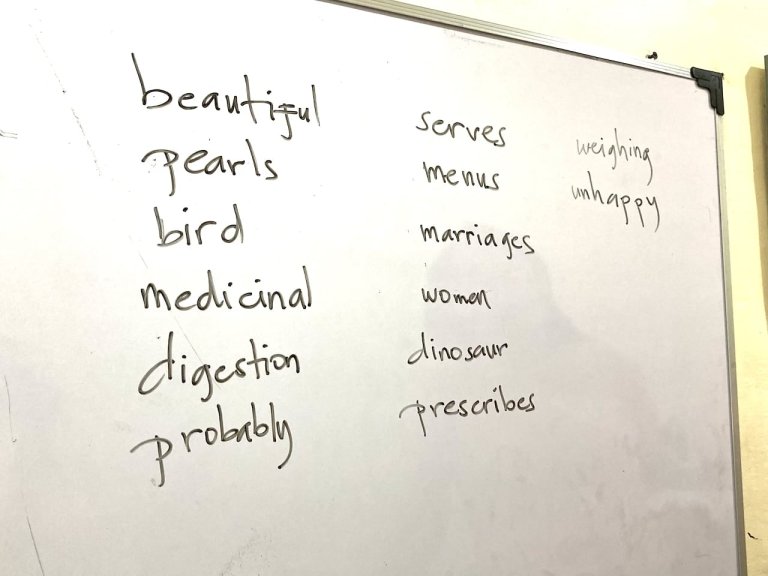 beautiful
pearls
bird
medicinal
digestion
probably
serves
menus
marriages
woman
dinosaur
prescribes
weighing
unhappy